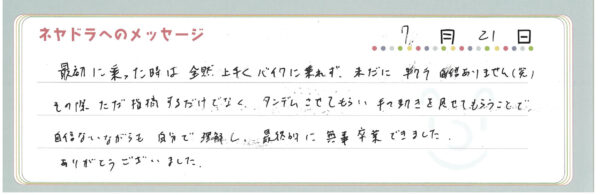 ネヤドラへのメッセージ
7月21日
最初に乗った時は全然上手くバイクに乗れず、未だに 自信ありません(笑)
その際ただ指摘するだけでなく、タンデムさせてもらい手の動きを見せてもらうことで、
自信ないながらも自分で理解し、最終的に無事卒業できました。
ありがとうございました。